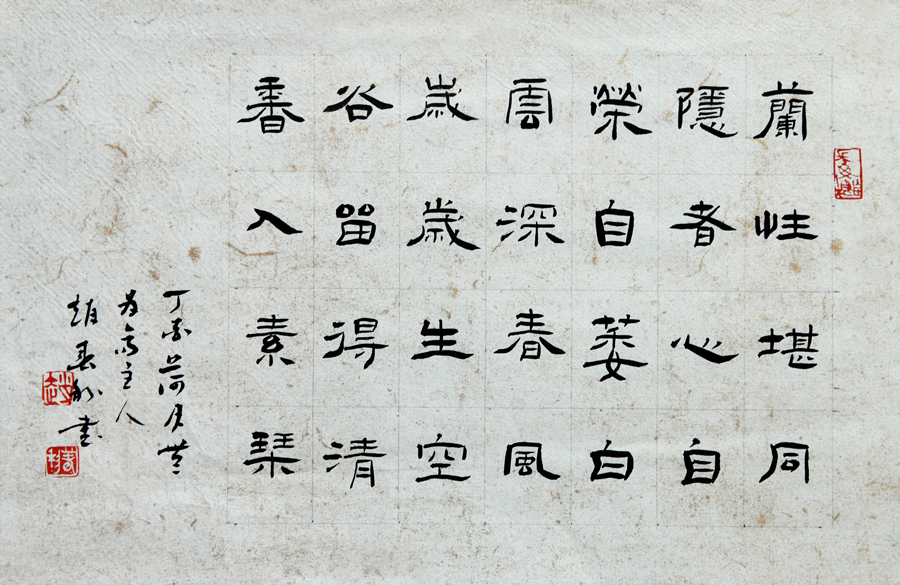 蘭性堪同
隱者心自
榮自萎白
雲深春風
歲歲生空
谷留得清
香入素琹
丁亥荷月
主人
書